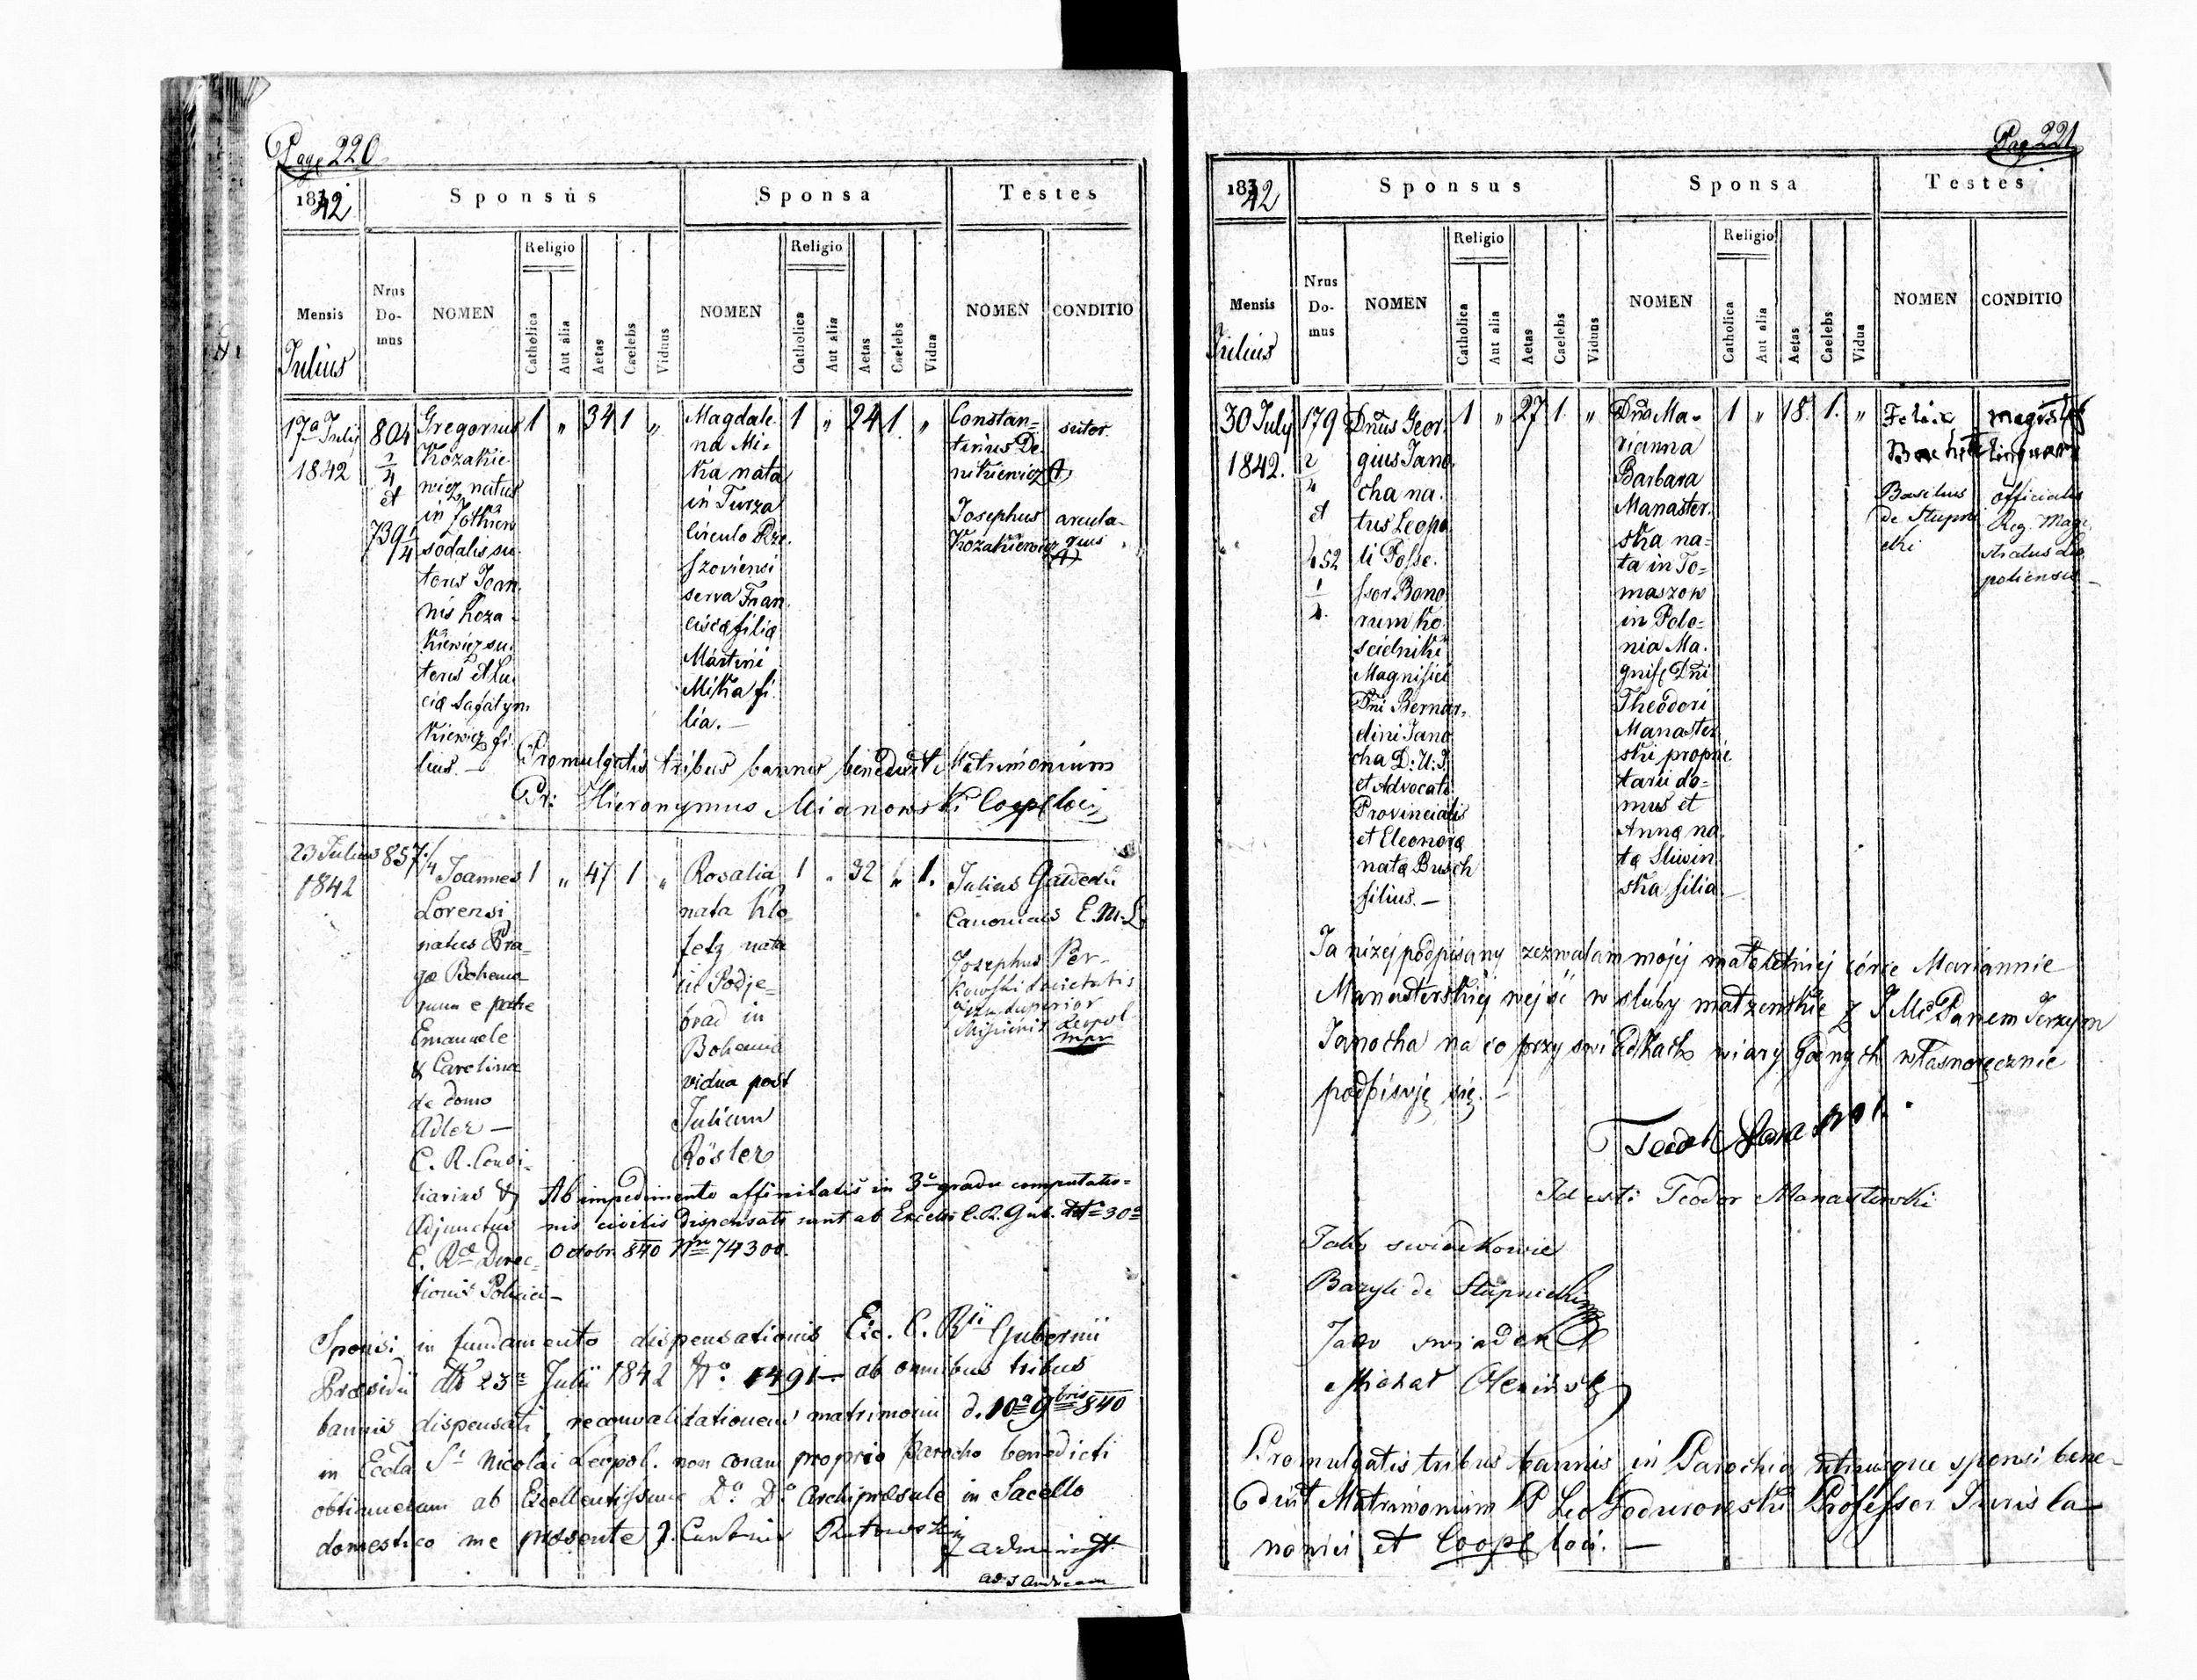 Pag 220
1842
Sponsus
Sponsa
Testes
Mensis
Julius
Nrus Do-mus
NOMEN
Religio
Catholica
Aut alia
Aetas
Caelebs
Viduus
NOMEN
Religio
Catholica
Aut alia
Aetas
Caelebs
Vidua
NOMEN
CONDITIO
17a July
1842
804
2/4
et
739 1/4
Gregorius
Kozakie
wicz natus
in
sodalis su
toris Joan
nis Koza
kiewicz su
toris et Lu
ciæ
kiewicz fi
lius. —
1 „ 34 1 „
Magdale
na Mi
ka nata
in Turza
Circulo Rze
szoviensi
serva Fran
ciscæ filia
Martini
Mika fi
lia. —
1 „ 24 1 „
Constan=
tinus De
nikiewicz
sutor.
Josephus
Kozakiewicz
arcula-
rius
Promulgatis tribus bannis benedixit Matrimonium
Pr: Hieronymus Mianowski Coop loci
23 Julius
1842
857 1/4
Joannes
Lorensi
natus Pra-
gæ Bohemo
rum e patre
Emanuele
& Carolina
de domo
Adler —
C. R. Consi-
liarius &
Adjunctus
C. Rae Direc-
tionis Policiei —
1 „ 47 1 „
Rosalia
nata Klo
fetz nata
in Podje=
brad in
Bohemia
vidua post
Julium
Rösler
1 „ 32 „ 1.
Julius
Canonicus E. M. L.
Josephus Per-
kowski Societatis
Jesu Superior
Missionis Leopol
mpr
Ab impedimento affinitatis in 3o gradu computatio-
nis civilis dispensati sunt ab Excelso C. R. Gub. dto 30a
Octobr. 840 Nro 74300.
Sponsi in fundamento dispensationis Exc. C. Rii Gubernii
Præsidii dto 23a Julii 1842 No 1491 — ab omnibus tribus
bannis dispensati, reconvalidationem matrimonii d. 10a 9bris 840
in Eccla St Nicolai Leopol. non coram proprio Parocho benedicti
obtinuerunt ab Excellentissimo Do Do Archipræsule in Sacello
domestico me præsente J. Rutowski
administ.
ad S Andream
Pag 221
1842
Sponsus
Sponsa
Testes
Mensis
Julius
Nrus Do-mus
NOMEN
Religio
Catholica
Aut alia
Aetas
Caelebs
Viduus
NOMEN
Religio
Catholica
Aut alia
Aetas
Caelebs
Vidua
NOMEN
CONDITIO
30 July
1842.
179
2/4
et
Dnus Geor
gius Jano
cha na
tus Leopo
li Posse
ssor Bono
rum Ko
scielniki
Magnifici
Dni Bernar-
dini Jano
cha D: U: J.
et Advocati
Provincialis
et Eleonoræ
natæ Busch
filius. —
1 „ 27 1. „
Dna Ma-
rianna
Barbara
Manaster-
ska na-
ta in To=
maszow
in Polo-
nia Ma-
gnif. Dni
Theodori
Manaster
ski proprie
tarii do-
mus et
Annæ na
tæ Sliwin
ska filia —
1 „ 18 1. „
Felix
magister
linguarum
Basilius
de Stupni
cki
officialis
Reg. Magi
stratus Leo
poliensis —
Ja niżej podpisany zezwalam mojéj małoletniej córce Mariannie
Manasterskiej wejść w sluby małżenskie z J Mć Panem Jerzym
Janocha na co przy świadkach wiary godnych własnoręcznie
podpisuję się. —
Id est: Teodor Manasterski
Jako swiadkowie
Bazyli de Stupnicki mp
Jako swiadek
Michał
Promulgatis tribus bannis in Parochia utriusque sponsi bene-
dixit Matrimonium P Leo Professor Juris Ca-
nonici et Coop loci. —